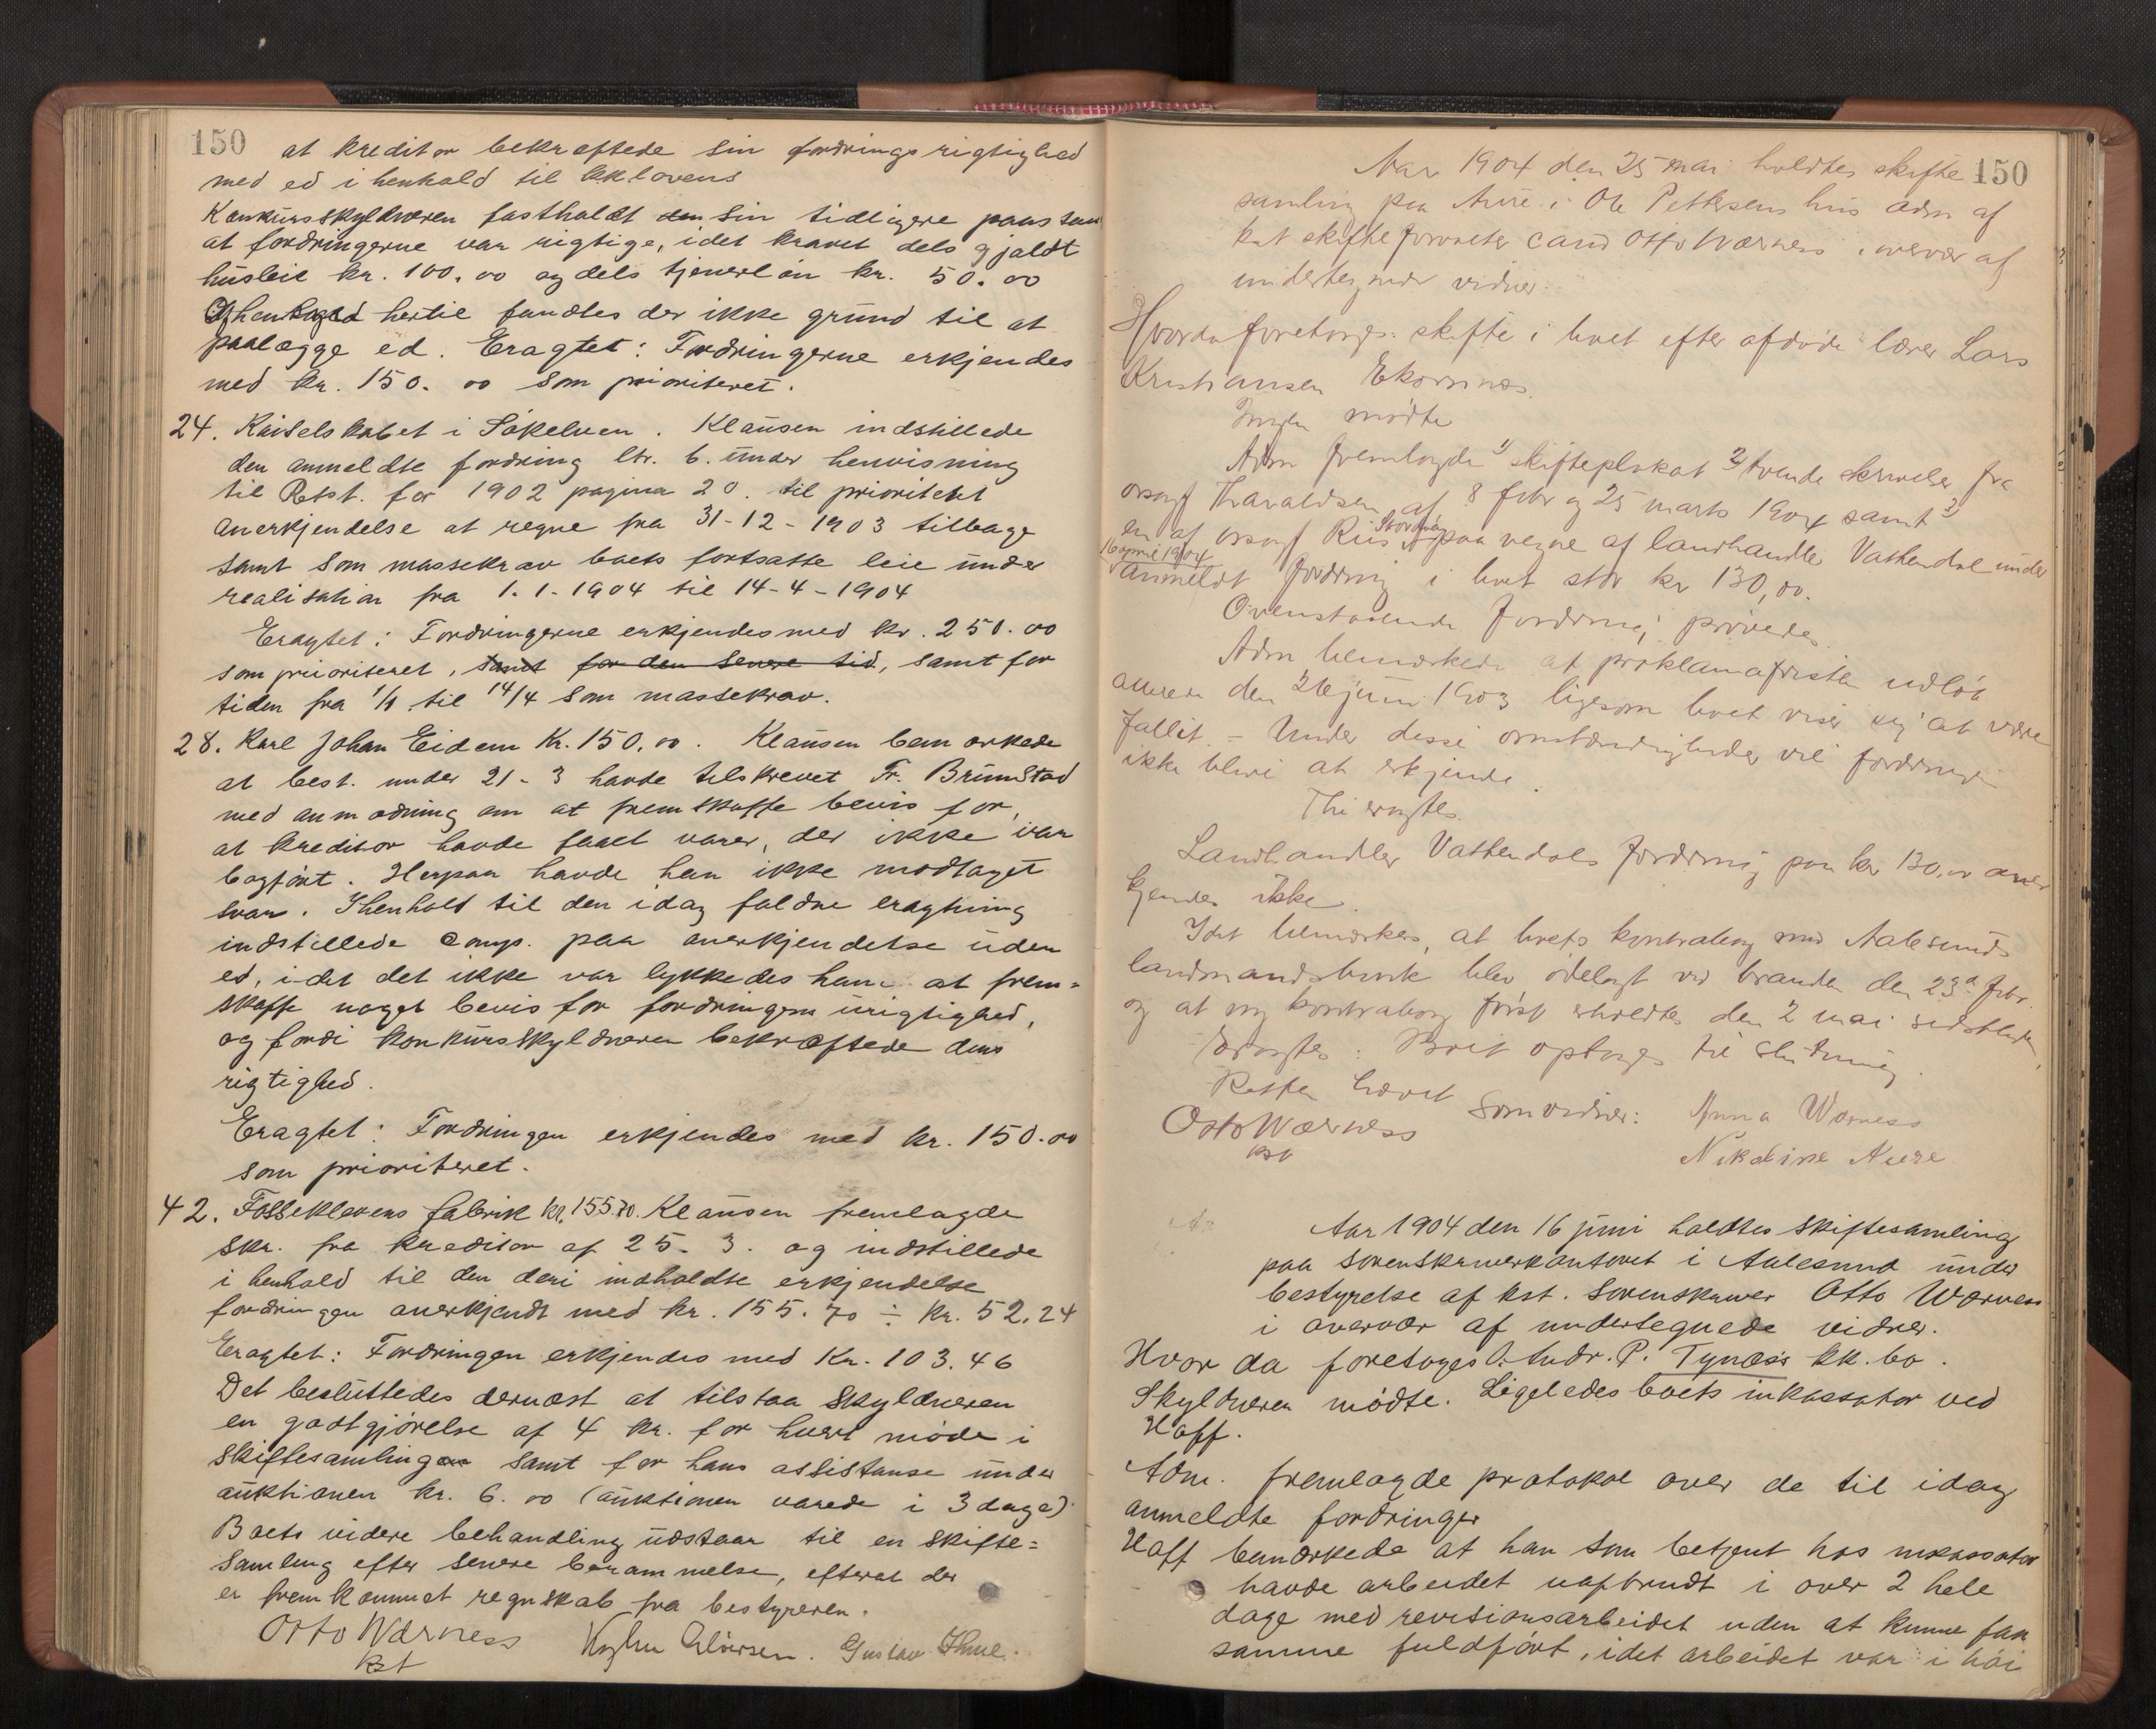 150
at kreditor bekræftede sin fordrings rigtighed
med ed i henhold til kk.lovens
Konkursskyldneren fastholdt sin tidligere paastan
at fordringerne var rigtige, idet kravet dels gjaldt
husleie kr. 100.00 og dels tjenerløn kr. 50.00
I henhold hertil fandtes der ikke grund til at
paalægge ed. Eragtet: Fordringerne erkjendes
med kr. 150.00 som prioriteret.
24. Kaiselskabet i Søkelven. Klausen indstillede
den anmeldte fordring ltr. 6. under henvisning
til Retst. for 1902 pagina 20. til prioritert
anerkjendelse at regne fra 31-12-1903 tilbage
samt som massekrav boets fortsatte leie under
realisation fra 1.1-1904 til 14-4-1904
Eragtet: Fordringerne erkjendes med kr. 250.00
som prioriteret, samt for den senere tid, samt for
tiden fra 1/1 til 14/4 som massekrav.
28. Karl Johan Eidem Kr. 150.00. Klausen bemærkede
at best. under 21-3 havde tilskrevet Fr. Brunstad
med anmodning om at fremskaffe bevis for,
at kreditor havde faaet varer, der ikke var
bogført. Herpaa havde han ikke modtaget
svar. I henhold til den idag faldne eragtning
indstillede comp. paa anerkjendelse uden
ed, idet det ikke var lykkedes ham at frem=
skaffe noget bevis for fordringens urigtighed,
og fordi konkursskyldneren bekræftede dens
rigtighed.
Eragtet: Fordringen erkjendes med kr. 150.00
som prioriteret.
42. Fosseklevens fabrik kr. 155.70. Klausen fremlagde
skr. fra kreditor af 25-3. og indstillede
i henhold til den deri indholdte erkjendelse
fordringen anerkjendt med kr. 155.70 ÷ kr. 52.24
Eragtet: Fordringen erkjendes med Kr. 103.46
Det besluttedes dernæst at tilstaa skyldneren
en godtgjørelse af 4 kr. for hvert møde i
skiftesamlingen samt for hans assistanse under
auktionen kr. 6.00 (auktionen varede i 3 dage)
Boets videre behandling udstaar til en skifte=
samling efter senere berammelse, efterat der
er fremkommet regnskab fra bestyreren.
Otto Wærness
kst
Gustav
150
Aar 1904 den 25 mai holdtes skifte
samling paa Aure i Ole Pettersens hus adm af
kst skifteforvalter cand Otto Wærness i overvær af
undertegnede vidner.
Hvorda foretoges: skifte i boet efter afdøde lærer Lars
Kristiansen Ekornnæs.
Ingen mødte
Adm fremlagde 1) skifteplakat 2) tvende skrivelser fra
orsagf Haraldsen af 8 febr og 25 marts 1904 samt 3)
en af orsagf Riis Stordal paa vegne af landhandler Vatthendal under
16 april 1904
Anmeldt fordring i boet stor kr 130,00.
Ovenstaaende fordring prøvedes.
Adm bemærkede at proklamafristen udløb
allerede den 26 juni 1903 ligesom boet viser sig at være
fallit. – Under disse omstændigheder vil fordringen
ikke blive at erkjende.
Thi eragtes.
Landhandler Vatthendals fordring paa kr 130.00 aner
kjendes ikke.
Idet bemærkes, at boets kontrabog med Aalesunds
landmandsbank blev ødelagt ved branden den 23de
og at ny kontrabog først erholdtes den 2 mai sidstleden,
Eragtes: Boet optages til slutning.
Retten hævet
Otto Wærness
kst
Som vidner: Anna Wærness
Nikoline Aure
Aar 1904 den 16 juni holdtes skiftesamling
paa sorenskriverkontoret i Aalesund under
bestyrelse af kst. sorenskriver Otto Wærness
i overvær af undertegnede vidner.
Hvor da foretoges A. Andr. P. Tynæss kk.bo.
Skyldneren mødte. Ligeledes boets inkassator ved
Hoff.
Adm. fremlagde protokol over de til idag
anmeldte fordringer
Hoff bemærkede at han som betjent hos inkassator
havde arbeidet uafbrudt i over 2 hele
dage med revisionsarbeidet uden at kunne faa
samme fuldført, idet arbeidet var i høi